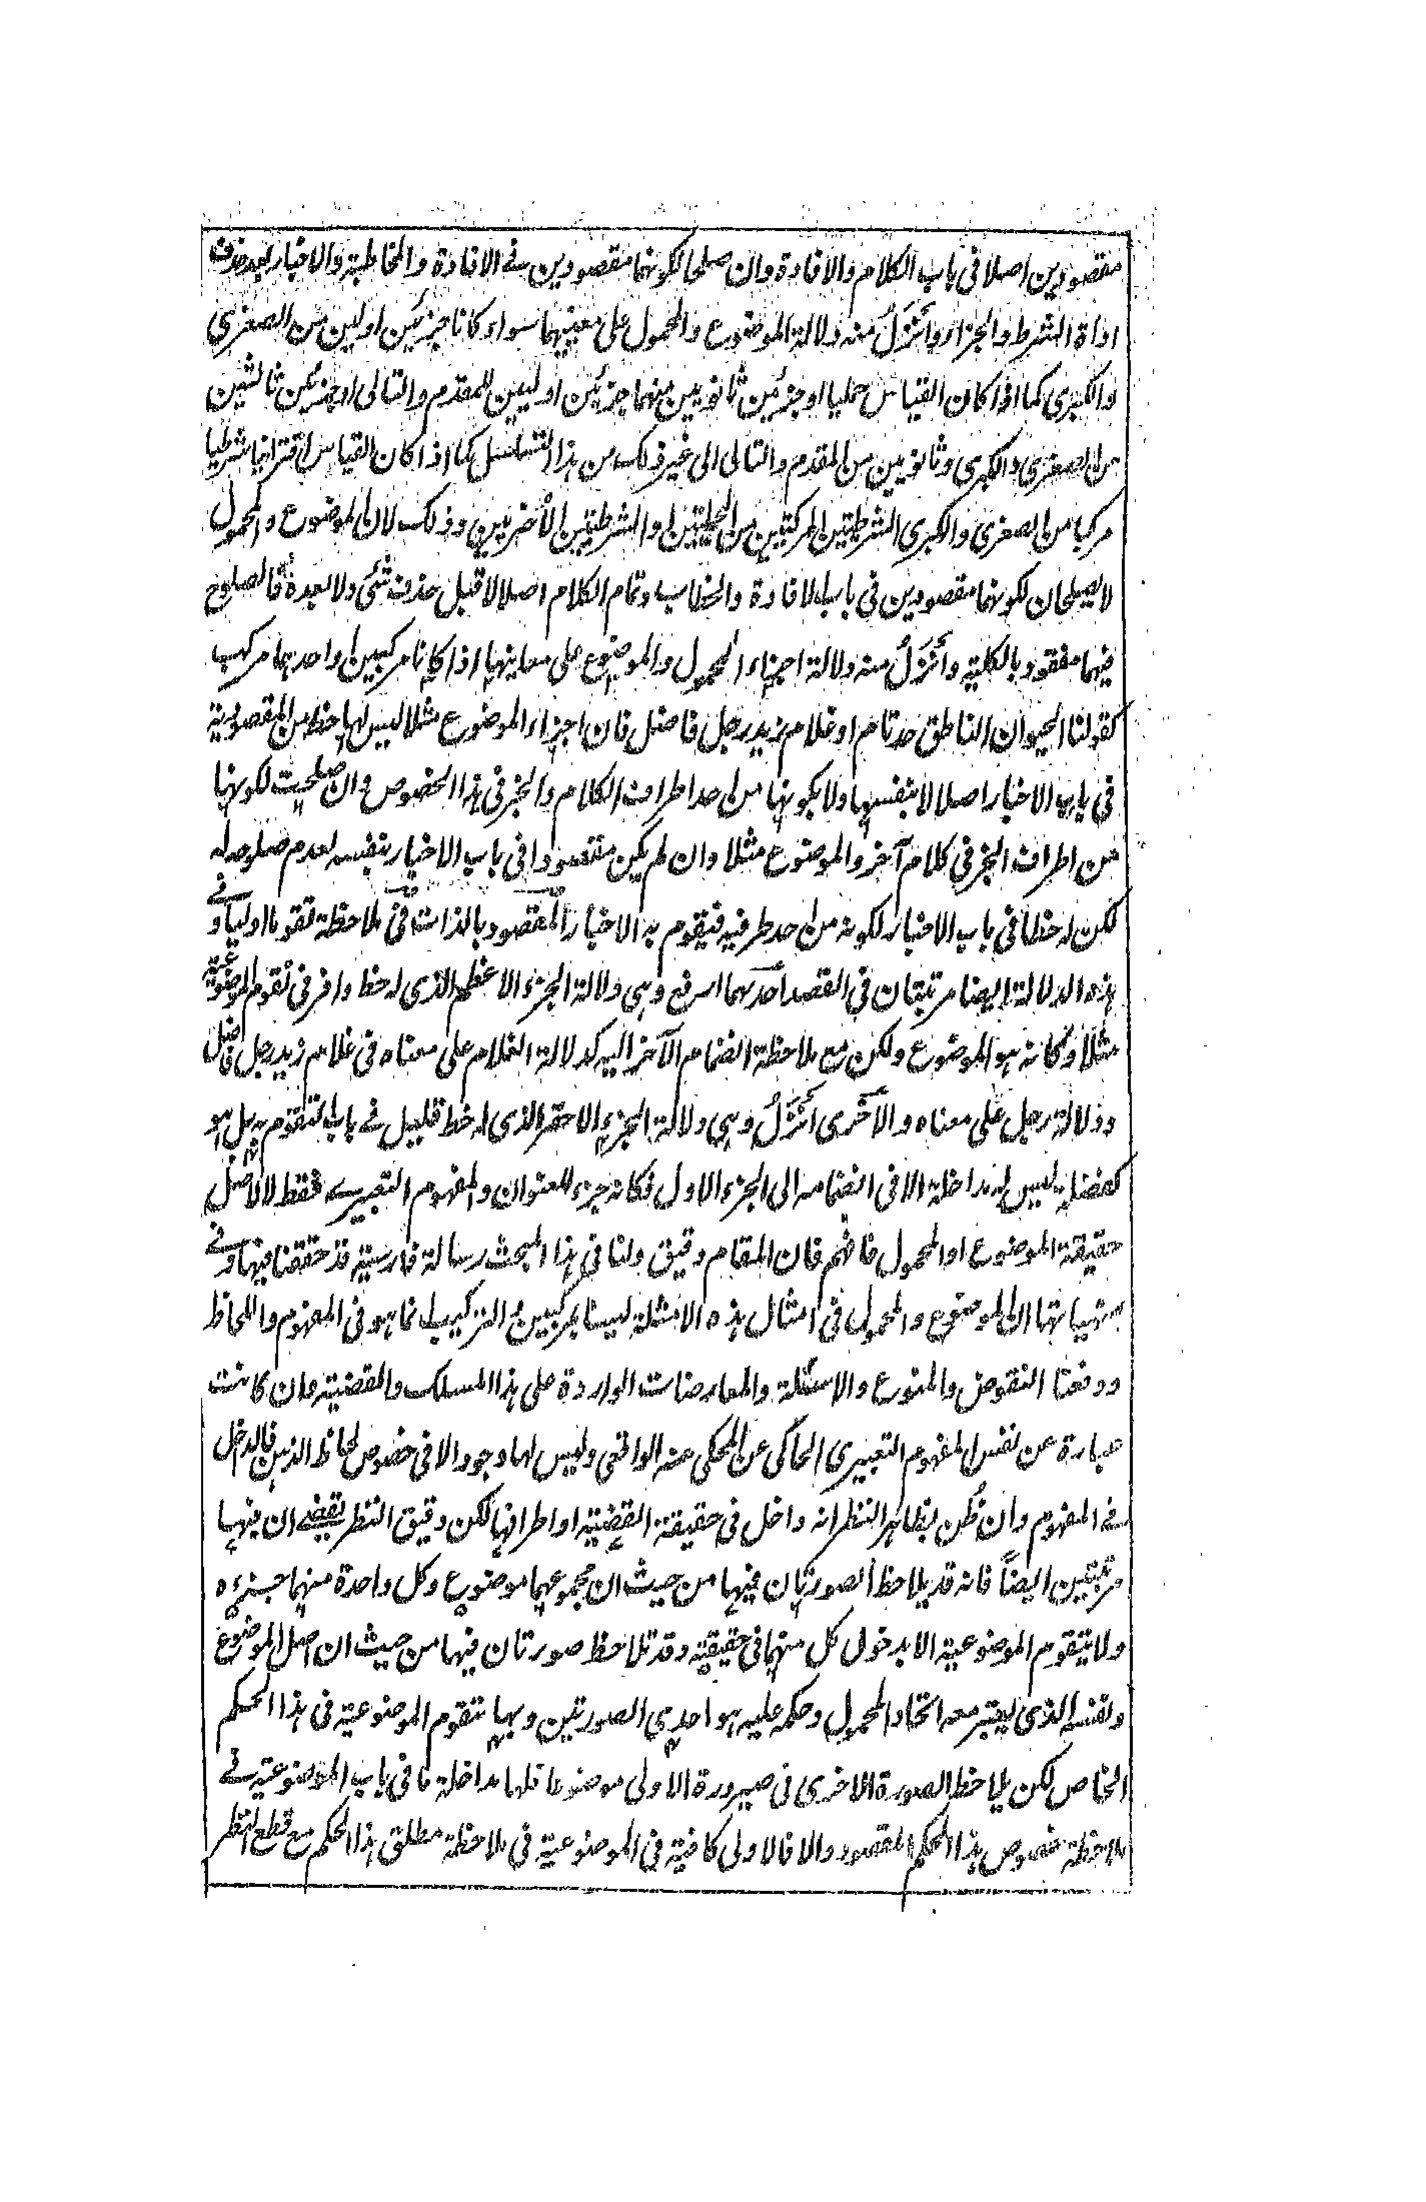 مقصودين اصلا فى باب الكلام والافادة وان صلحا لكونهما مقصودين فى الافادة والمخاطبة والاخبار بعد حذف
اداة الشرط والجزاء وانزل منه دلالة الموضوع والمحمول على معنييهما سواء كانا جزئين اولين من الصغرى
والكبرى كما اذا كان القياس حمليا او جزئين ثانويين منهما جزئين اوليين للمقدم والتالى او جزئين ثالثين
من الصغرى والكبرى وثانويين من المقدم والتالى الى غير ذلك من هذا التسلسل كما اذا كان القياس اقترانيا شرطيا
مركبا من الصغرى والكبرى الشرطيتين المركبتين من الحمليتين او الشرطيتين الاخريين وذلك لان الموضوع والمحمول
لا يصلحان لكونهما مقصودين فى باب الافادة والخطاب وتمام الكلام اصلا لا قبل حذف شئ ولا بعده فالصلوح
فيهما مفقود بالكلية وانزل منه دلالة اجزاء المحمول والموضوع على معانيها اذا كانا مركبين او احدهما مركب
كقولنا الحيوان الناطق حد تام او غلام زيد رجل فاضل فان اجزاء الموضوع مثلا ليس لها حظ من المقصودية
فى باب الاخبار اصلا لا بنفسها ولا بكونها من احد اطراف الكلام والخبر فى هذا الخصوص وان صلحت لكونها
من اطراف الخبر فى كلام آخر والموضوع مثلا وان لم يكن مقصودا فى باب الاخبار بنفسه لعدم صلوحه له
لكن له حظا فى باب الاخبار لكونه من احد طرفيه فيقوم به الاخبار المقصود بالذات فى ملاحظة تقوما اوليا وفى
هذه الدلالة ايضا مرتبتان فى القصد احدهما ارفع وهى دلالة الجزء الاعظم الذى له حظ وافر فى تقوم الموضوعية
مثلا وكانه هو الموضوع ولكن مع ملاحظة انضمام الآخر اليه كدلالة الغلام على معناه فى غلام زيد رجل فاضل
ودلالة رجل على معناه والاخرى انزل وهى دلالة الجزء الاحقر الذى له حظ قليل فى باب التقوم به بل هو
كفضلة ليس له مداخلة الا فى انضمامه الى الجزء الاول فكانه جزء للعنوان والمفهوم التعبيرى فقط لا لاصل
حقيقة الموضوع او المحمول فافهم فان المقام دقيق ولنا فى هذا المبحث رسالة فارسية قد حققنا فيها وفى
منهياتها ان الموضوع والمحمول فى امثال هذه الامثلة ليسا بمركبين والتركيب انما هو فى المفهوم واللحاظ
ودفعنا النقوض والمنوع والاسئلة والمعارضات الواردة على هذا المسلك والقضية وان كانت
عبارة عن نفس المفهوم التعبيرى الحاكى عن المحكى عنه الواقعى وليس لها وجود الا فى خصوص لحاظ الذهن فالداخل
فى المفهوم وان ظن بظاهر النظر انه داخل فى حقيقة القضية او اطرافها لكن دقيق النظر يقضى ان فيها
مرتبتين ايضاً فانه قد يلاحظ الصورتان فيها من حيث ان مجموعهما موضوع وكل واحدة منهما جزءه
ولا يتقوم الموضوعية الا بدخول كل منهما فى حقيقته وقد تلاحظ صورتان فيها من حيث ان اصل الموضوع
ونفسه الذى يعتبر معه اتحاد المحمول وحكمه عليه هو احدى الصورتين وبها تتقوم الموضوعية فى هذا الحكم
الخاص لكن يلاحظ الصورة الاخرى فى صيرورة الاولى موضوعا فلها مداخلة ما فى باب الموضوعية فى
ملاحظة خصوص هذا الحكم المقصود والا فالاولى كافية فى الموضوعية فى ملاحظة مطلق هذا الحكم مع قطع النظر